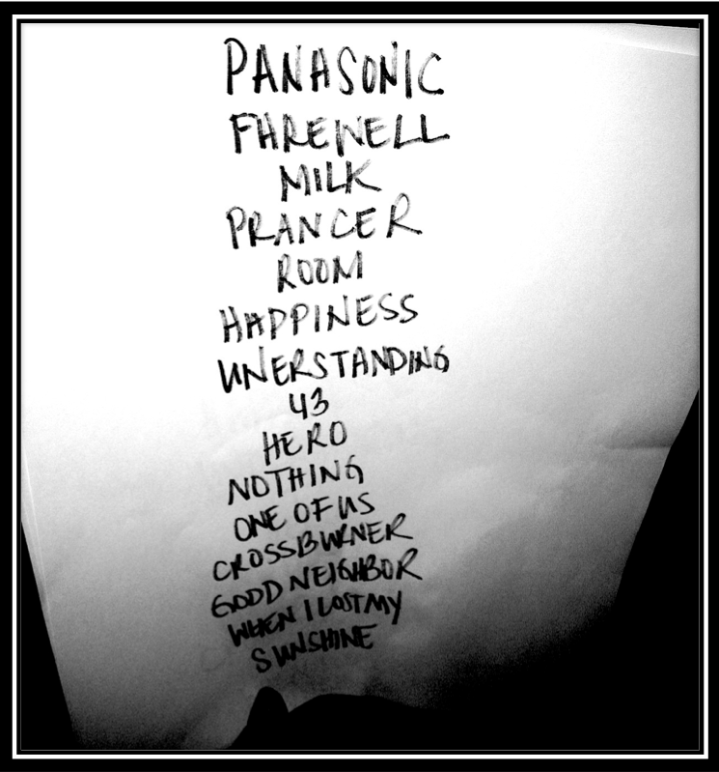 PANASONIC
FAREWELL
MILK
PRANCER
ROOM
HAPPINESS
UNERSTANDING
43
HERO
NOTHING
ONE OF US
CROSSBURNER
GOOD NEIGHBOR
WHEN I LOST MY
SUNSHINE